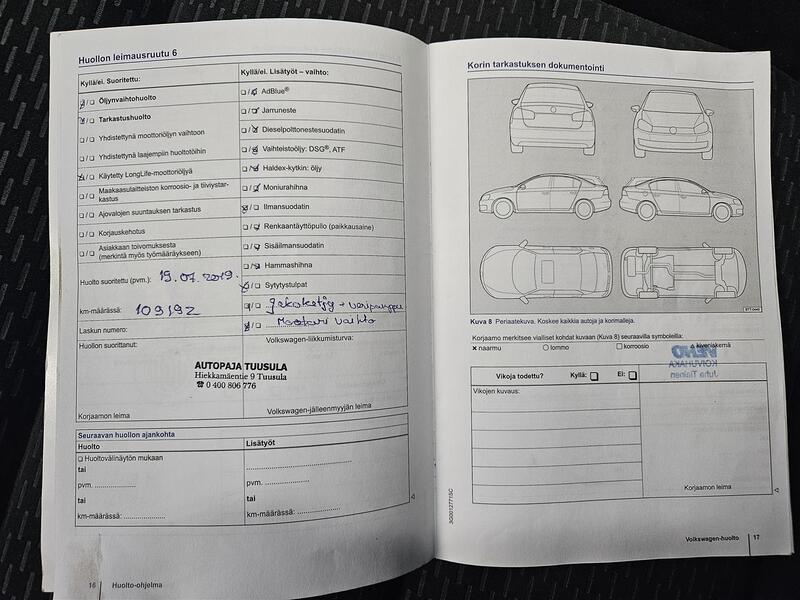 Huollon leimausruutu 6
Kyllä/ei. Suoritettu:
☑/❏ Öljynvaihtohuolto
☑/❏ Tarkastushuolto
❏/❏ Yhdistettynä moottoriöljyn vaihtoon
❏/❏ Yhdistettynä laajempiin huoltotöihin
☑/❏ Käytetty LongLife-moottoriöljyä
❏/❏ Maakaasulaitteiston korroosio- ja tiiviystar-
kastus
❏/❏ Ajovalojen suuntauksen tarkastus
❏/❏ Korjauskehotus
❏/❏ Asiakkaan toivomuksesta
(merkintä myös työmääräykseen)
Huolto suoritettu (pvm.): 19.07.2019.
km-määrässä: 109192
Laskun numero:
Kyllä/ei. Lisätyöt – vaihto:
❏/☑ AdBlue®
❏/☑ Jarruneste
❏/☑ Dieselpolttonestesuodatin
❏/☑ Vaihteistoöljy: DSG®, ATF
❏/☑ Haldex-kytkin: öljy
❏/☑ Moniurahihna
☑/❏ Ilmansuodatin
❏/☑ Renkaantäyttöpullo (paikkausaine)
❏/☑ Sisäilmansuodatin
❏/☑ Hammashihna
☑/❏ Sytytystulpat
Jakoketju + vesipumppu
Moottori vaihto
Huollon suorittanut:
Volkswagen-liikkumisturva:
AUTOPAJA TUUSULA
Hiekkamäentie 9 Tuusula
☎ 0 400 806 776
Korjaamon leima
Volkswagen-jälleenmyyjän leima
Seuraavan huollon ajankohta
Huolto
Lisätyöt
❏ Huoltovälinäytön mukaan
tai
pvm. ....................
tai
km-määrässä: ....................
....................
pvm. ....................
tai
km-määrässä: ....................
16 Huolto-ohjelma
Korin tarkastuksen dokumentointi
BTT-0440
Kuva 8 Periaatekuva. Koskee kaikkia autoja ja korimalleja.
Korjaamo merkitsee vialliset kohdat kuvaan (Kuva 8) seuraavilla symboleilla:
✕ naarmu ○ lommo □ korroosio △ kiveniskemä
KOIVUHAKA
Juha Tiainen
Vikoja todettu? Kyllä: ❏ Ei: ❏
Vikojen kuvaus:
Korjaamon leima
3G0012771SC
Volkswagen-huolto 17